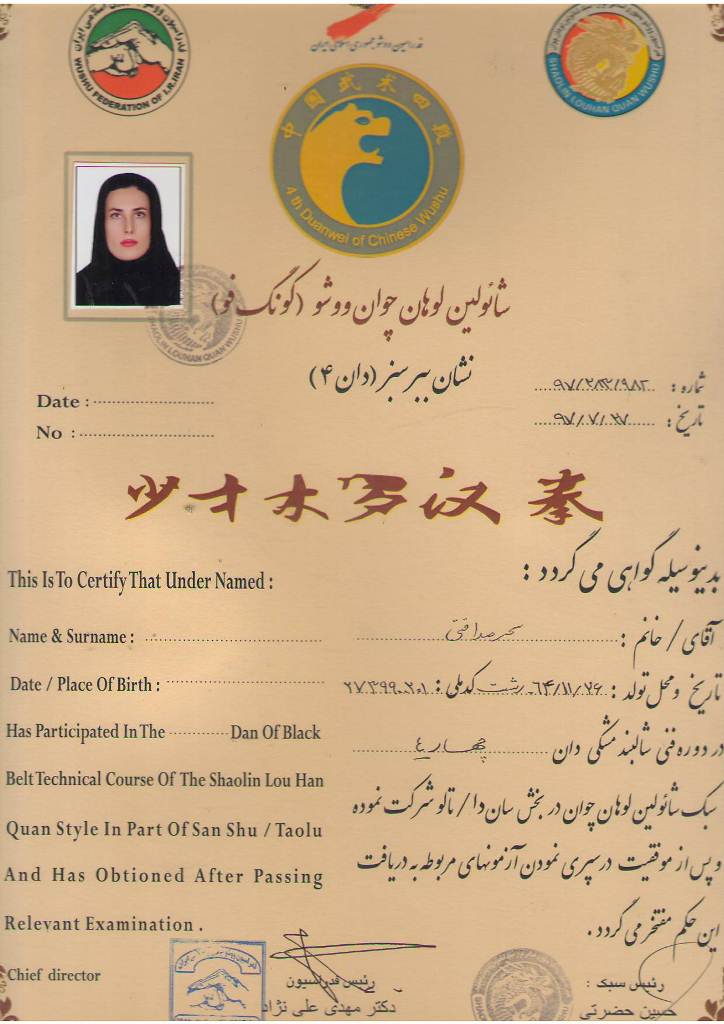 فدراسیون ووشو جمهوری اسلامی ایران
WUSHU FEDERATION OF I.R.IRAN
SHAOLIN LOUHAN QUAN WUSHU
中國武术四段
4 th Duanwei of Chinese Wushu
SHAOLIN LOUHAN QUAN WUSHU
شائولین لوهان چوان ووشو (گونگ فو)
نشان ببر سبز (دان ۴)
شماره :
Date :
تاریخ : ۹۷/۷/۲۷
No :
少才木罗汉拳
This Is To Certify That Under Named :
بدینوسیله گواهی می گردد :
Name & Surname :
آقای / خانم : سحر صداقتی
Date / Place Of Birth :
تاریخ و محل تولد : ۶۴/۱۱/۲۶ رشت کدملی :
Has Participated In The Dan Of Black
در دوره فنی شالبند مشکی دان چهار ۴
Belt Technical Course Of The Shaolin Lou Han
سبک شائولین لوهان چوان در بخش سان دا / تالو شرکت نموده
Quan Style In Part Of San Shu / Taolu
و پس از موفقیت در سپری نمودن آزمونهای مربوطه به دریافت
And Has Obtioned After Passing
این حکم مفتخر می گردد .
Relevant Examination .
Chief director
رئیس فدراسیون
دکتر مهدی علی نژاد
رئیس سبک :
حسین حضرتی